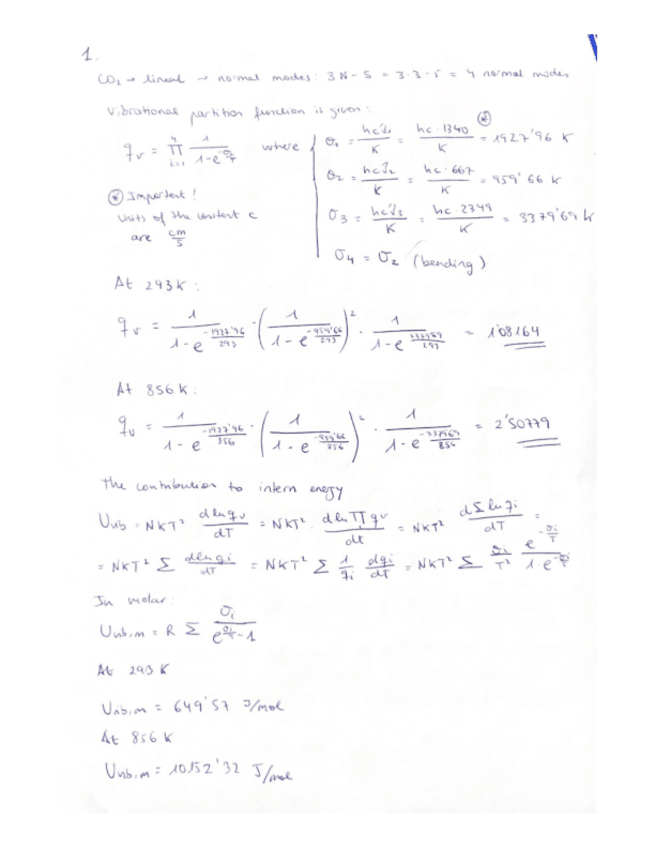 1.
CO₂ → lineal → normal modes: 3N-5 = 3·3-5 = 4 normal modes
Vibrational partition function is given:
q_v = ∏_{i=1}^{4} 1/(1-e^{-σi/T}) where
σ₁ = hcν̃₁/K = hc·1340/K = 1927'96 K ⊛
σ₂ = hcν̃₂/K = hc·667/K = 959'66 K
σ₃ = hcν̃₃/K = hc·2349/K = 3379'69 K
σ₄ = σ₂ (bending)
⊛ Important!
Units of the constant c
are cm/s
At 293K:
q_v = 1/(1-e^{-1927'96/293}) · (1/(1-e^{-959'66/293}))² · 1/(1-e^{-3379'69/293}) = 1'08164
At 856K:
q_v = 1/(1-e^{-1927'96/856}) · (1/(1-e^{-959'66/856}))² · 1/(1-e^{-3379'69/856}) = 2'50779
The contribution to intern energy
U_vib = NKT² dlnq_v/dT = NKT² · dln∏q_v/dt = NKT² dΣlnq_i/dT =
= NKT² Σ dlnq_i/dT = NKT² Σ 1/q_i dq_i/dT = NKT² Σ σi/T² e^{-σi/T}/(1-e^{-σi/T})
In molar:
U_vib,m = R Σ σi/(e^{σi/T}-1)
At 293 K
U_vib,m = 649'57 J/mol
At 856 K
U_vib,m = 10152'32 J/mol